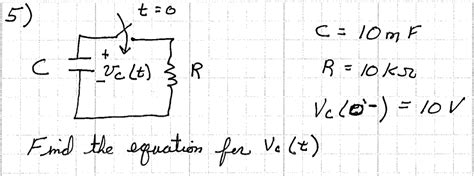 5)
t=0
C
+
Vc(t)
-
R
C = 10mF
R = 10kΩ
Vc(0-) = 10V
Find the equation for Vc(t)